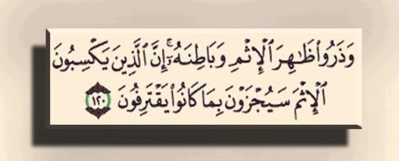 وَذَرُوا۟ ظَـٰهِرَ ٱلْإِثْمِ وَبَاطِنَهُۥٓ ۚ إِنَّ ٱلَّذِينَ يَكْسِبُونَ
ٱلْإِثْمَ سَيُجْزَوْنَ بِمَا كَانُوا۟ يَقْتَرِفُونَ ١٢٠